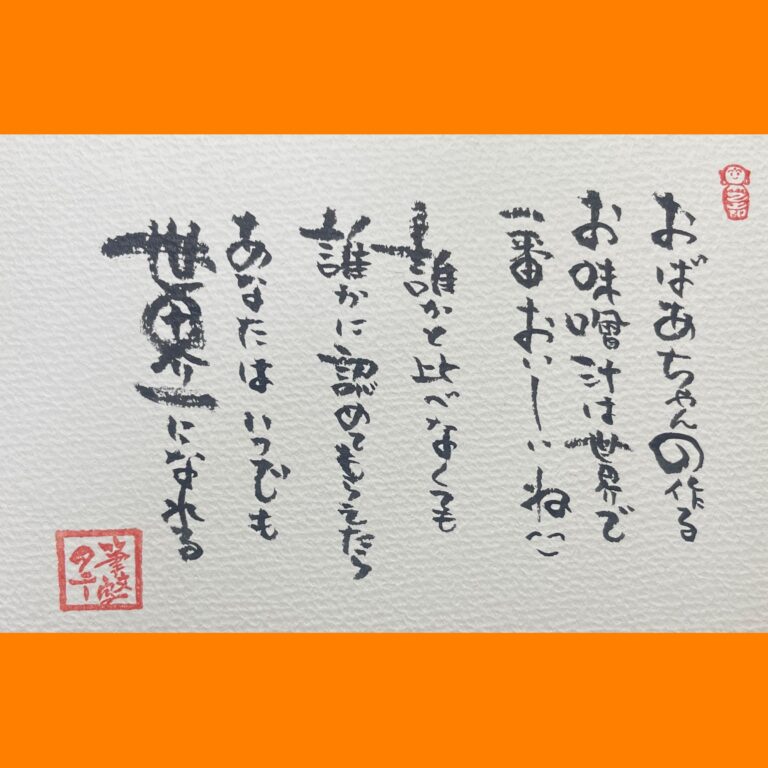 おばあちゃんの作る
お味噌汁は世界で
一番おいしいね
誰かと比べなくても
誰かに認めてもらえたら
あなたはいつでも
世界一になれる